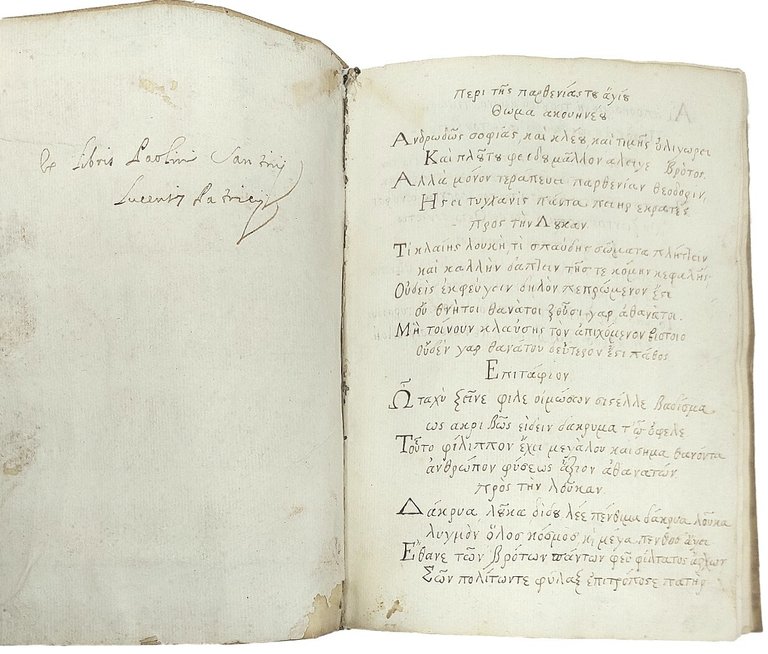 Ex libris Paolini Santinij
Lucensis Patricij
Περι τῆς παρθενίας τȣ ἁγίȣ
Θωμα ακουηνέȣ
Ανδρωδῶς σοφιάς και κλέȣ και τιμῆς ὀλιγωρει
Και πλȣ́τȣ φειδȣ μᾶλλον Βρότος.
Αλλὰ μόνον τεραπευει παρθενίαν θεόδοριν,
Ης οι τυγχανις πάντα πατηρ εκρατες
προς τὴν Λȣκαν
Τί κλαιης λουκη τί σπαύδης σώματα πλήτ]ειν
και καλλὴν δαπ]ειν τῆς τε κόμην κεφαλῆς
Ουδεὶς ἐκφεύγειν δηλὸν πεπρωμένον ἐςι
ȣ̓ θνητοι θανάτοι ζοῦσι γαρ ἀθανάτοι.
Μὴ τοίνουν κλαύσης τον ἀπιχόμενον βιοτοιο
Οὐδὲν γαρ θανάτου δεύτερον ἐςι πάθος
Επιταφίον
Ὦ ταχὺ ξεῖνε φιλε οἰμώσων βαδῖσμα.
ως ακριβῶς ειδειν δάκρυμα τ'ῶ ὄφελε
Τοῦτο φίλιππον ἔχει μεγάλου και σημα θανόντα
ἀνθρώπον φύσεως ἄξιον ἀθανατών
πρὸς την λοῦκαν
Δάκρυα λȣ̃κα δίδȣ λέε πένθιμα δάκρυα λοῦκα
λυγμὸν ὅλος κόσμος κ̀ μέγα πενθος ἄγει
Εθανε τῶν Βρότων πάντων φεῦ φίλτατος ἄρχων
Σῶν πολίτωντε φύλαξ ἐπιτρόποςε πατήρ